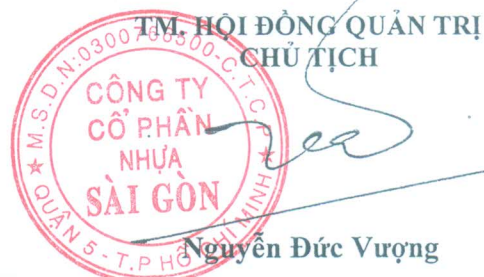 TM. HỘI ĐỒNG QUẢN TRỊ
CHỦ TỊCH
M.S.D.N:0300766500-C.T.C.P
CÔNG TY
CỔ PHẦN
NHỰA
SÀI GÒN
QUẬN 5 - T.P HỒ CHÍ MINH
Nguyễn Đức Vượng